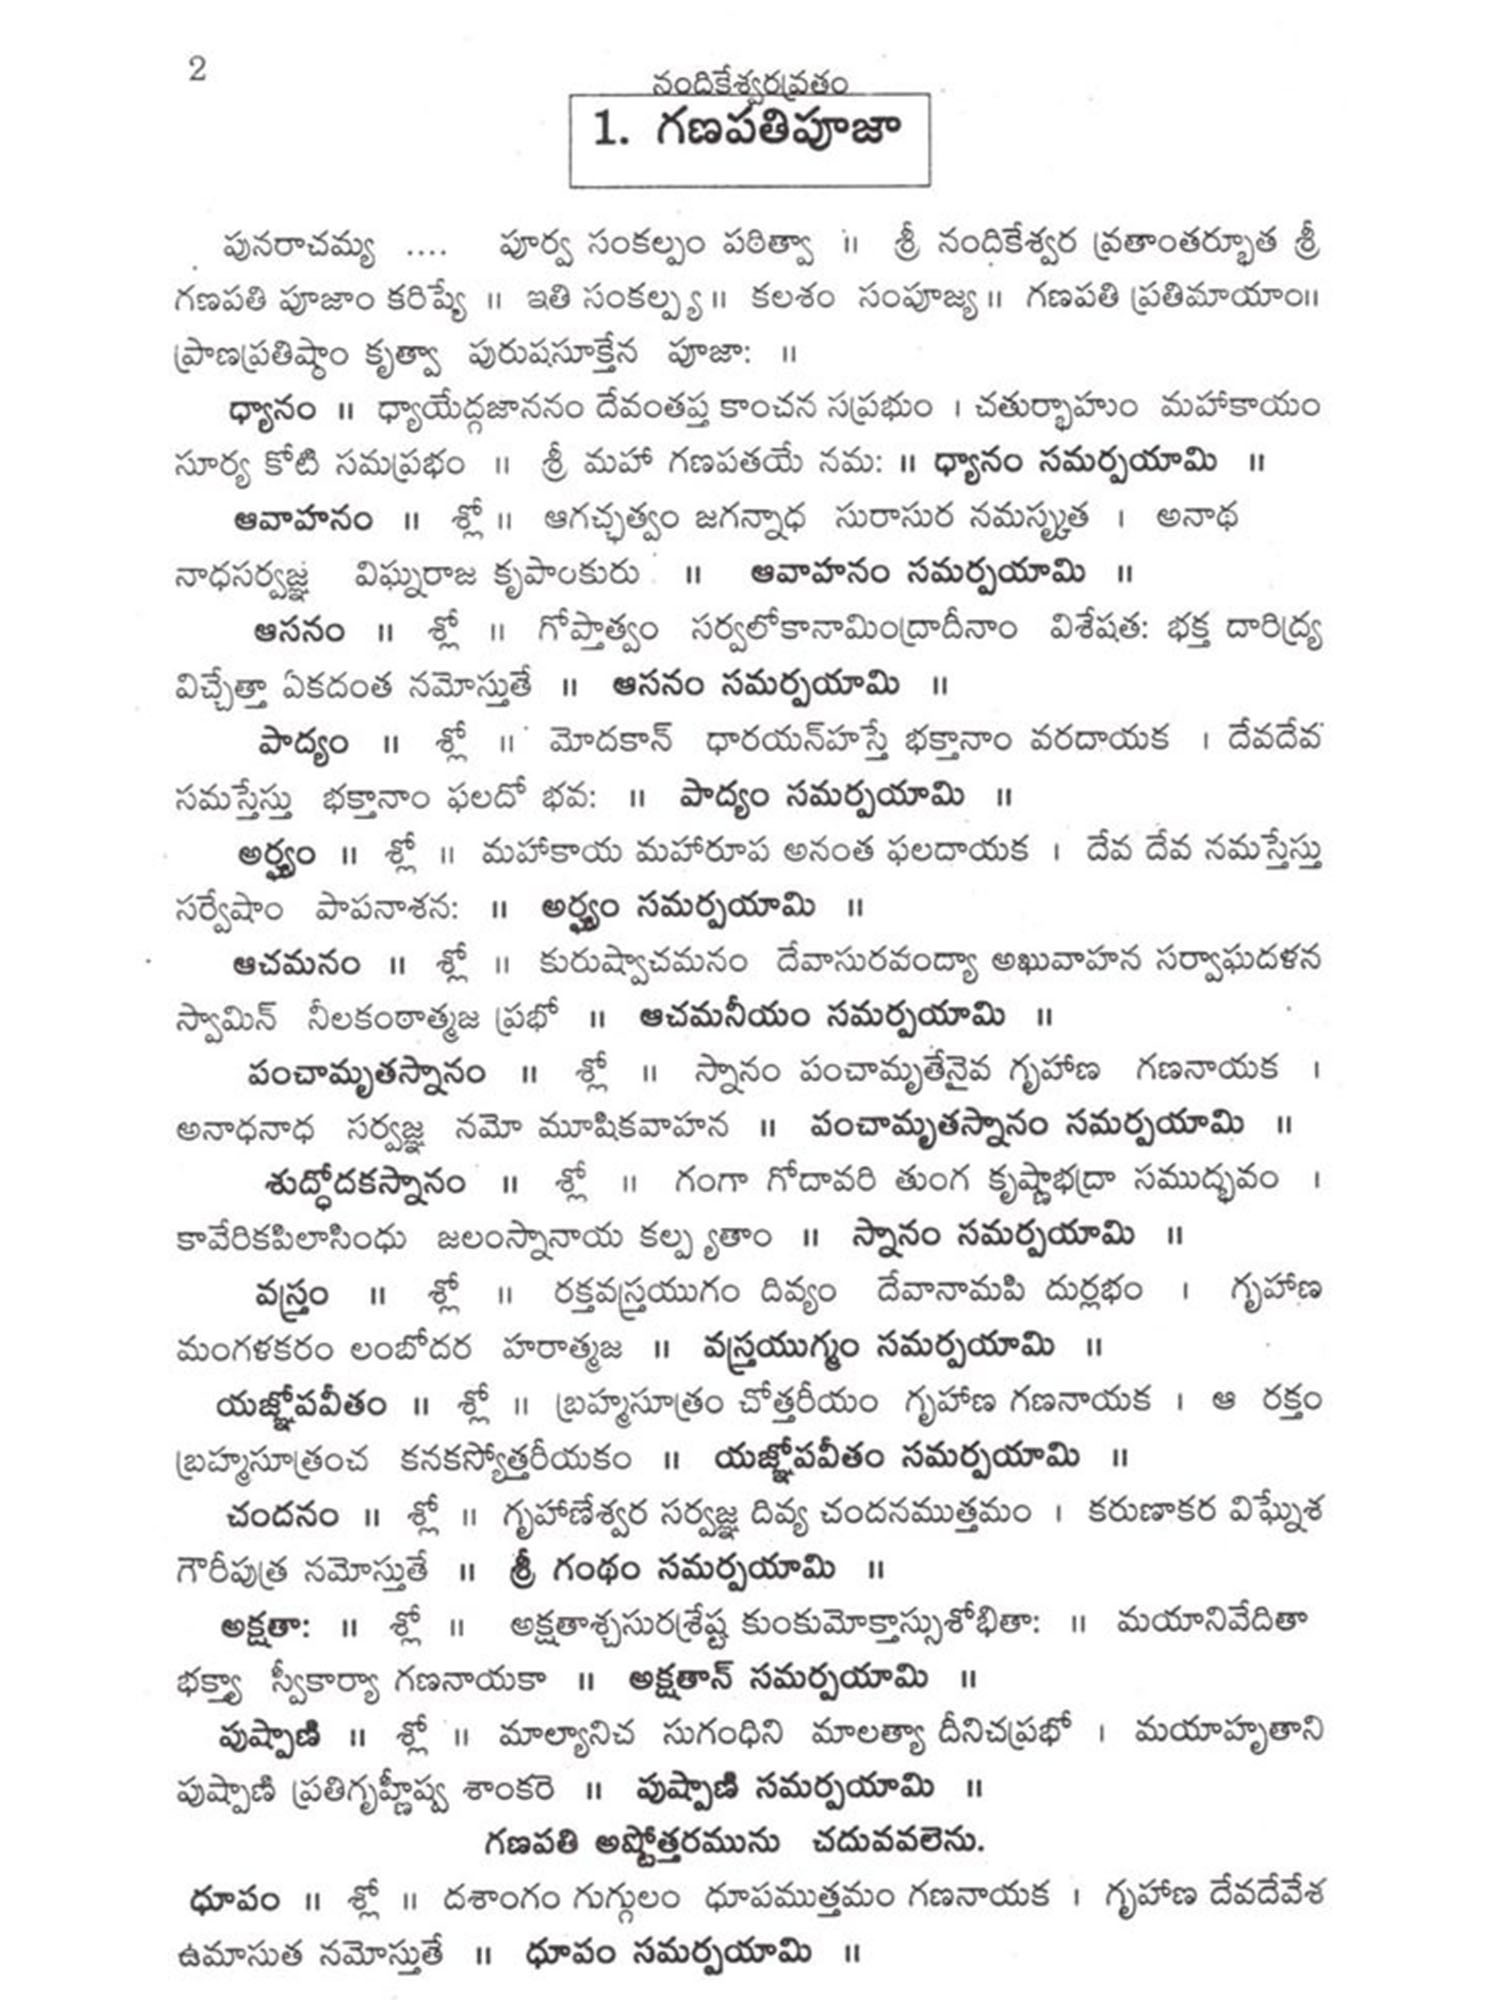 2
నందికేశ్వరవ్రతం
1. గణపతిపూజా
పునరాచమ్య .... పూర్వ సంకల్పం పఠిత్వా ॥ శ్రీ నందికేశ్వర వ్రతాంతర్భూత శ్రీ
గణపతి పూజాం కరిష్యే ॥ ఇతి సంకల్ప్య॥ కలశం సంపూజ్య॥ గణపతి ప్రతిమాయాం॥
ప్రాణప్రతిష్ఠాం కృత్వా పురుషసూక్తేన పూజా: ॥
ధ్యానం ॥ ధ్యాయేద్గజాననం దేవంతప్త కాంచన సప్రభుం । చతుర్భాహుం మహాకాయం
సూర్య కోటి సమప్రభం ॥ శ్రీ మహా గణపతయే నమ: ॥ ధ్యానం సమర్పయామి ॥
ఆవాహనం ॥ శ్లో ॥ ఆగచ్ఛత్వం జగన్నాధ సురాసుర నమస్కృత । అనాథ
నాధసర్వజ్ఞ విఘ్నరాజ కృపాంకురు ॥ ఆవాహనం సమర్పయామి ॥
ఆసనం ॥ శ్లో ॥ గోప్తాత్వం సర్వలోకానామింద్రాదీనాం విశేషత: భక్త దారిద్ర్య
విచ్చేత్తా ఏకదంత నమోస్తుతే ॥ ఆసనం సమర్పయామి ॥
పాద్యం ॥ శ్లో ॥ మోదకాన్ ధారయన్‌హస్తే భక్తానాం వరదాయక । దేవదేవ
సమస్తేస్తు భక్తానాం ఫలదో భవ: ॥ పాద్యం సమర్పయామి ॥
అర్ఘ్యం ॥ శ్లో ॥ మహాకాయ మహారూప అనంత ఫలదాయక । దేవ దేవ నమస్తేస్తు
సర్వేషాం పాపనాశన: ॥ అర్ఘ్యం సమర్పయామి ॥
ఆచమనం ॥ శ్లో ॥ కురుష్వాచమనం దేవాసురవంద్యా అఖువాహన సర్వాఘదళన
స్వామిన్ నీలకంఠాత్మజ ప్రభో ॥ ఆచమనీయం సమర్పయామి ॥
పంచామృతస్నానం ॥ శ్లో ॥ స్నానం పంచామృతేనైవ గృహాణ గణనాయక ।
అనాధనాధ సర్వజ్ఞ నమో మూషికవాహన ॥ పంచామృతస్నానం సమర్పయామి ॥
శుద్ధోదకస్నానం ॥ శ్లో ॥ గంగా గోదావరి తుంగ కృష్ణాభద్రా సముద్భవం ।
కావేరికపిలాసింధు జలంస్నానాయ కల్ప్యతాం ॥ స్నానం సమర్పయామి ॥
వస్త్రం ॥ శ్లో ॥ రక్తవస్త్రయుగం దివ్యం దేవానామపి దుర్లభం । గృహాణ
మంగళకరం లంబోదర హరాత్మజ ॥ వస్త్రయుగ్మం సమర్పయామి ॥
యజ్ఞోపవీతం ॥ శ్లో ॥ బ్రహ్మసూత్రం చోత్తరీయం గృహాణ గణనాయక । ఆ రక్తం
బ్రహ్మసూత్రంచ కనకస్యోత్తరీయకం ॥ యజ్ఞోపవీతం సమర్పయామి ॥
చందనం ॥ శ్లో ॥ గృహాణేశ్వర సర్వజ్ఞ దివ్య చందనముత్తమం । కరుణాకర విఘ్నేశ
గౌరీపుత్ర నమోస్తుతే ॥ శ్రీ గంథం సమర్పయామి ॥
అక్షతా: ॥ శ్లో ॥ అక్షతాశ్చసురశ్రేష్ట కుంకుమోక్తాస్సుశోభితా: ॥ మయానివేదితా
భక్త్యా స్వీకార్యా గణనాయకా ॥ అక్షతాన్ సమర్పయామి ॥
పుష్పాణి ॥ శ్లో ॥ మాల్యానిచ సుగంధిని మాలత్యా దీనిచప్రభో । మయాహృతాని
పుష్పాణి ప్రతిగృహ్ణీష్వ శాంకరె ॥ పుష్పాణి సమర్పయామి ॥
గణపతి అష్టోత్తరమును చదువవలెను.
ధూపం ॥ శ్లో ॥ దశాంగం గుగ్గులం ధూపముత్తమం గణనాయక । గృహాణ దేవదేవేశ
ఉమాసుత నమోస్తుతే ॥ ధూపం సమర్పయామి ॥